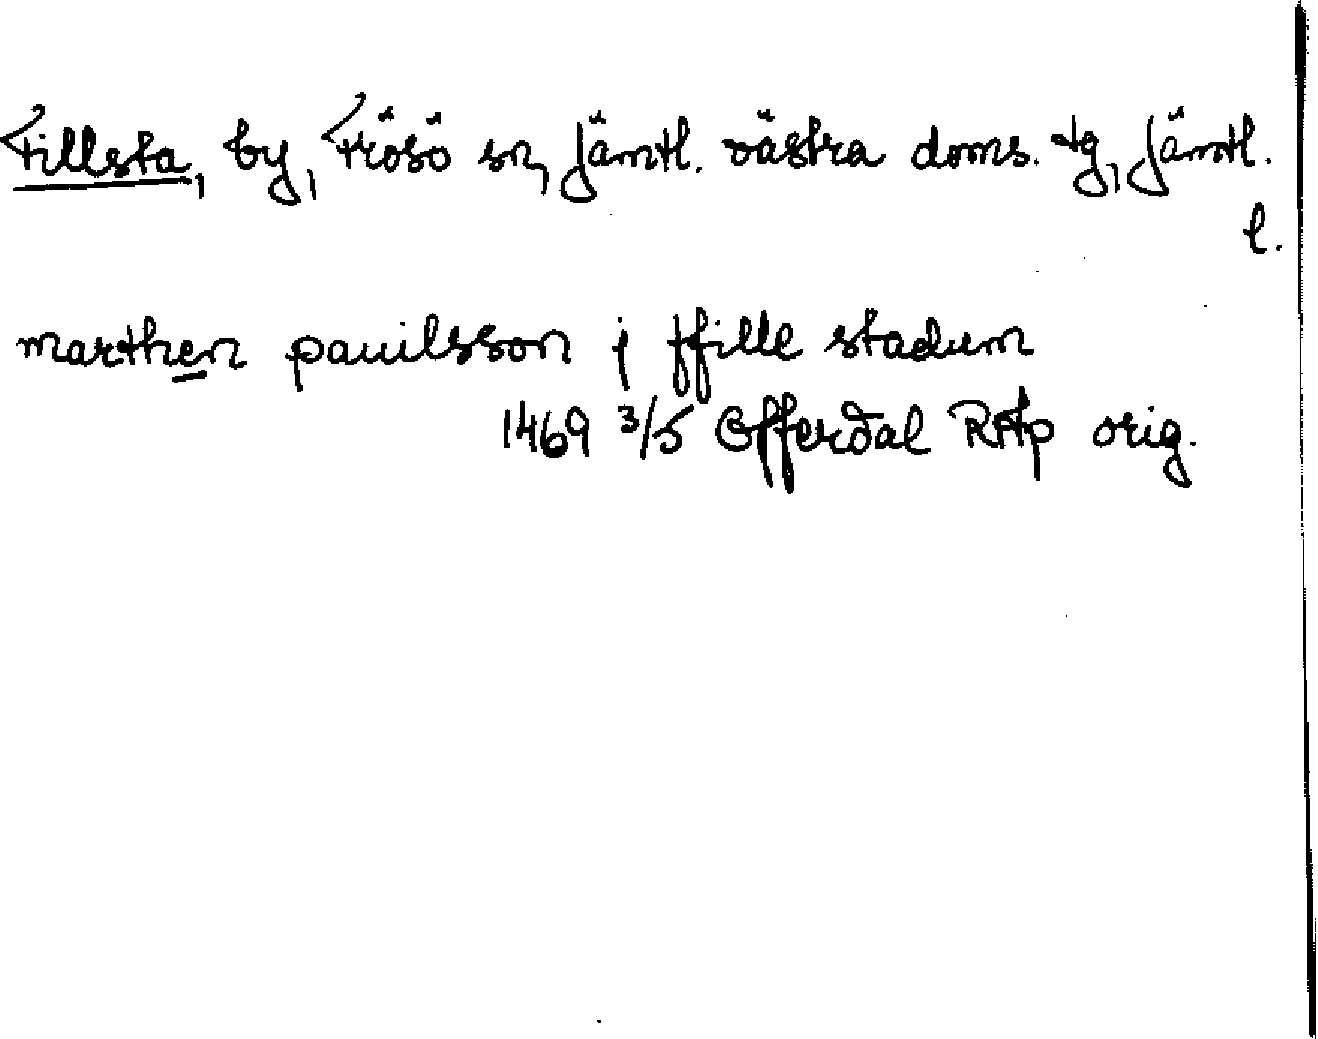 Fillsta, by, Frösö sn, Jämtl. västra doms. tg, Jämtl.
l.
marthen pauilsson j ffille stadum
1469 3/5 Offerdal RAp orig.